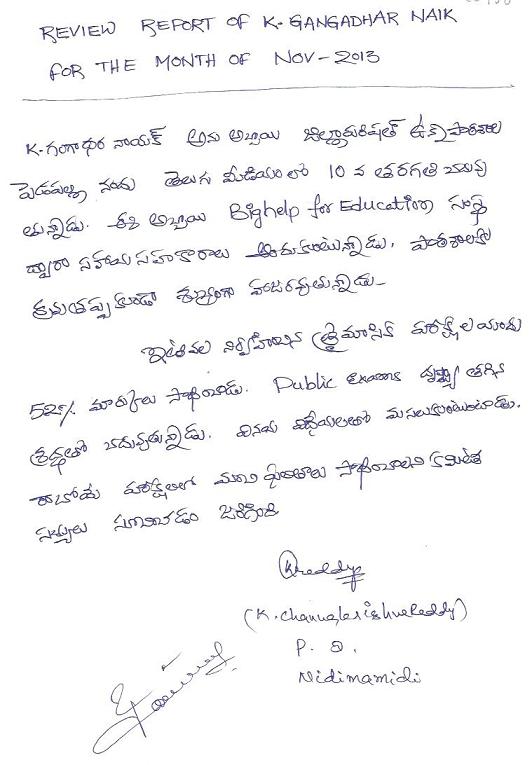 REVIEW REPORT OF K. GANGADHAR NAIK
FOR THE MONTH OF NOV-2013
K. గంగాధర నాయక్ అను అబ్బాయి జిల్లాపరిషత్ ఉన్నత పాఠశాల
పెడపల్లి నందు తెలుగు మీడియంలో 10 వ తరగతి చదువు
తున్నాడు. ఈ అబ్బాయి Bighelp for Education సంస్థ
ద్వారా సహాయ సహకారాలు అందుకుంటున్నాడు. పాఠశాలకు
క్రమతప్పకుండా శుభ్రంగా హాజరవుతున్నాడు.
ఇటీవల నిర్వహించిన త్రైమాసిక పరీక్షలయందు
52% మార్కులు సాధించాడు. Public exams దృష్ట్యా తగిన
శ్రద్ధతో చదువుతున్నాడు. వినయ విధేయలతో మసలుకుంటుంటాడు.
రాబోయే పరీక్షలలో మంచి ఫలితాలు సాధించాలని కమిటీ
సభ్యులు సూచించడం జరిగింది
Kreddy
(K. Channakrishna Reddy)
P. S.
Nidimamidi